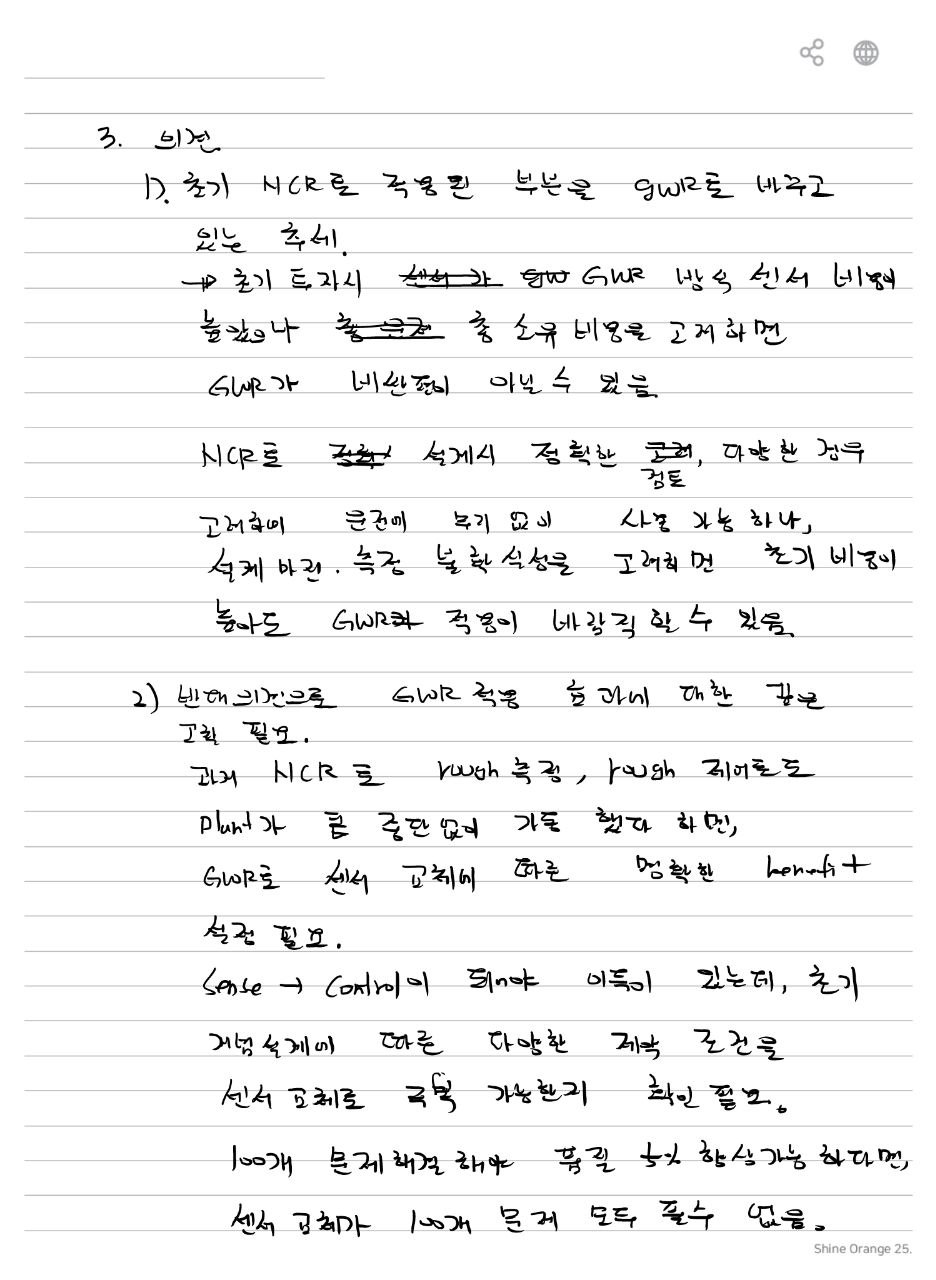 3. 의견
1). 초기 NCR로 적용된 부분을 GWR로 바꾸고
있는 추세.
→ 초기 투자시 센서가 GW GWR 방식 센서 비용이
높았으나 총 소유 비용을 고려하면
GWR가 비싼편이 아닐 수 있음
NCR로 설계시 정확한 고려, 다양한 경우
검토
고려하에 운전에 무리 없이 사용 가능하나,
설계 마진. 측정 불확식성을 고려하면 초기 비용이
높아도 GWR 적용이 바람직 할 수 있음
2) 반대의견으로 GWR 적용 효과에 대한 깊은
고찰 필요.
과거 NCR로 rough 측정, rough 제어로도
Plant가 큰 중단없이 가동 했다 하면,
GWR로 센서 교체에 따른 명확한 benefit
설정 필요.
Sense → Control이 되어야 이득이 있는데, 초기
개념설계에 따른 다양한 제약 조건을
센서 교체로 극복 가능한지 확인 필요.
100개 문제해결해야 품질 5% 향상가능 하다면,
센서 교체가 100개 문제 모두 풀수 없음.
Shine Orange 25.